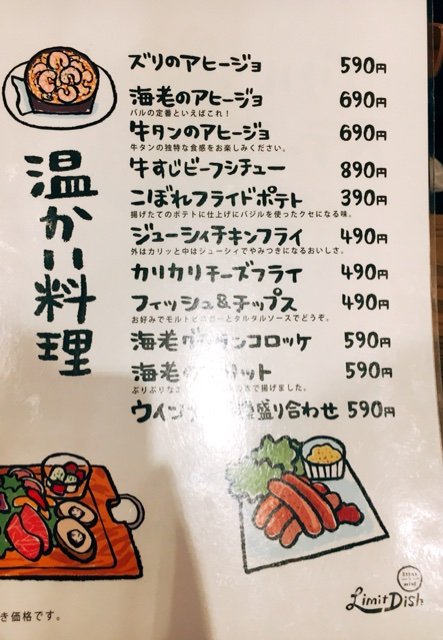 温かい料理
ズリのアヒージョ 590円
海老のアヒージョ 690円
バルの定番といえばこれ!
牛タンのアヒージョ 690円
牛タンの独特な食感をお楽しみください。
牛すじビーフシチュー 890円
こぼれフライドポテト 390円
揚げたてのポテトに仕上げにバジルを使ったクセになる味。
ジューシィチキンフライ 490円
外はカリッと中はジューシィでやみつきになるおいしさ。
カリカリチーズフライ 490円
フィッシュ&チップス 490円
お好みでモルトビネガーとタルタルソースでどうぞ。
海老グ タンコロッケ 590円
海老の ット 590円
ぷりぷりな で揚げました。
ウイン 盛り合わせ 590円
き価格です。
Limit Dish